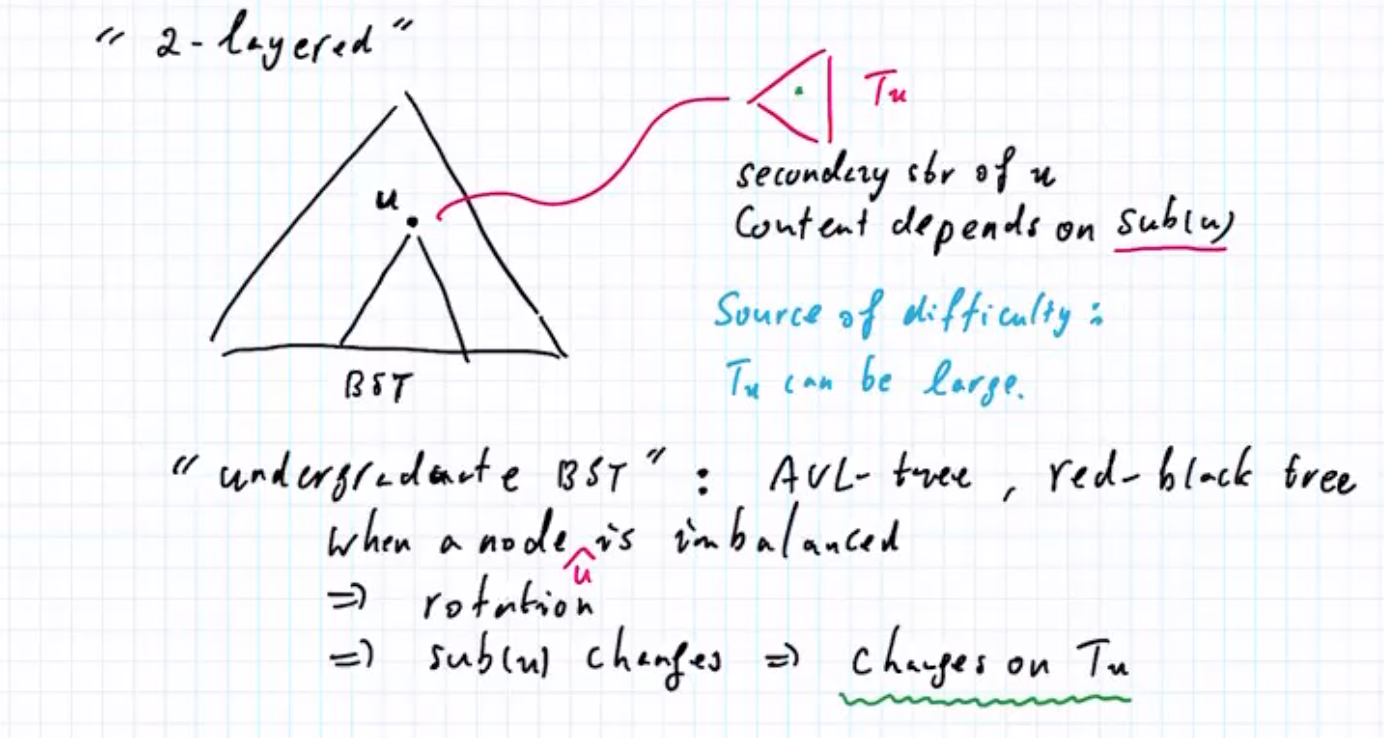 "2-layered"
Tu
u
secondary str of u
Content depends on sub(u)
Source of difficulty:
Tu can be large.
BST
"undergraduate BST": AVL-tree, red-black tree
when a node is imbalanced
u
⇒ rotation
⇒ sub(u) changes ⇒ changes on Tu